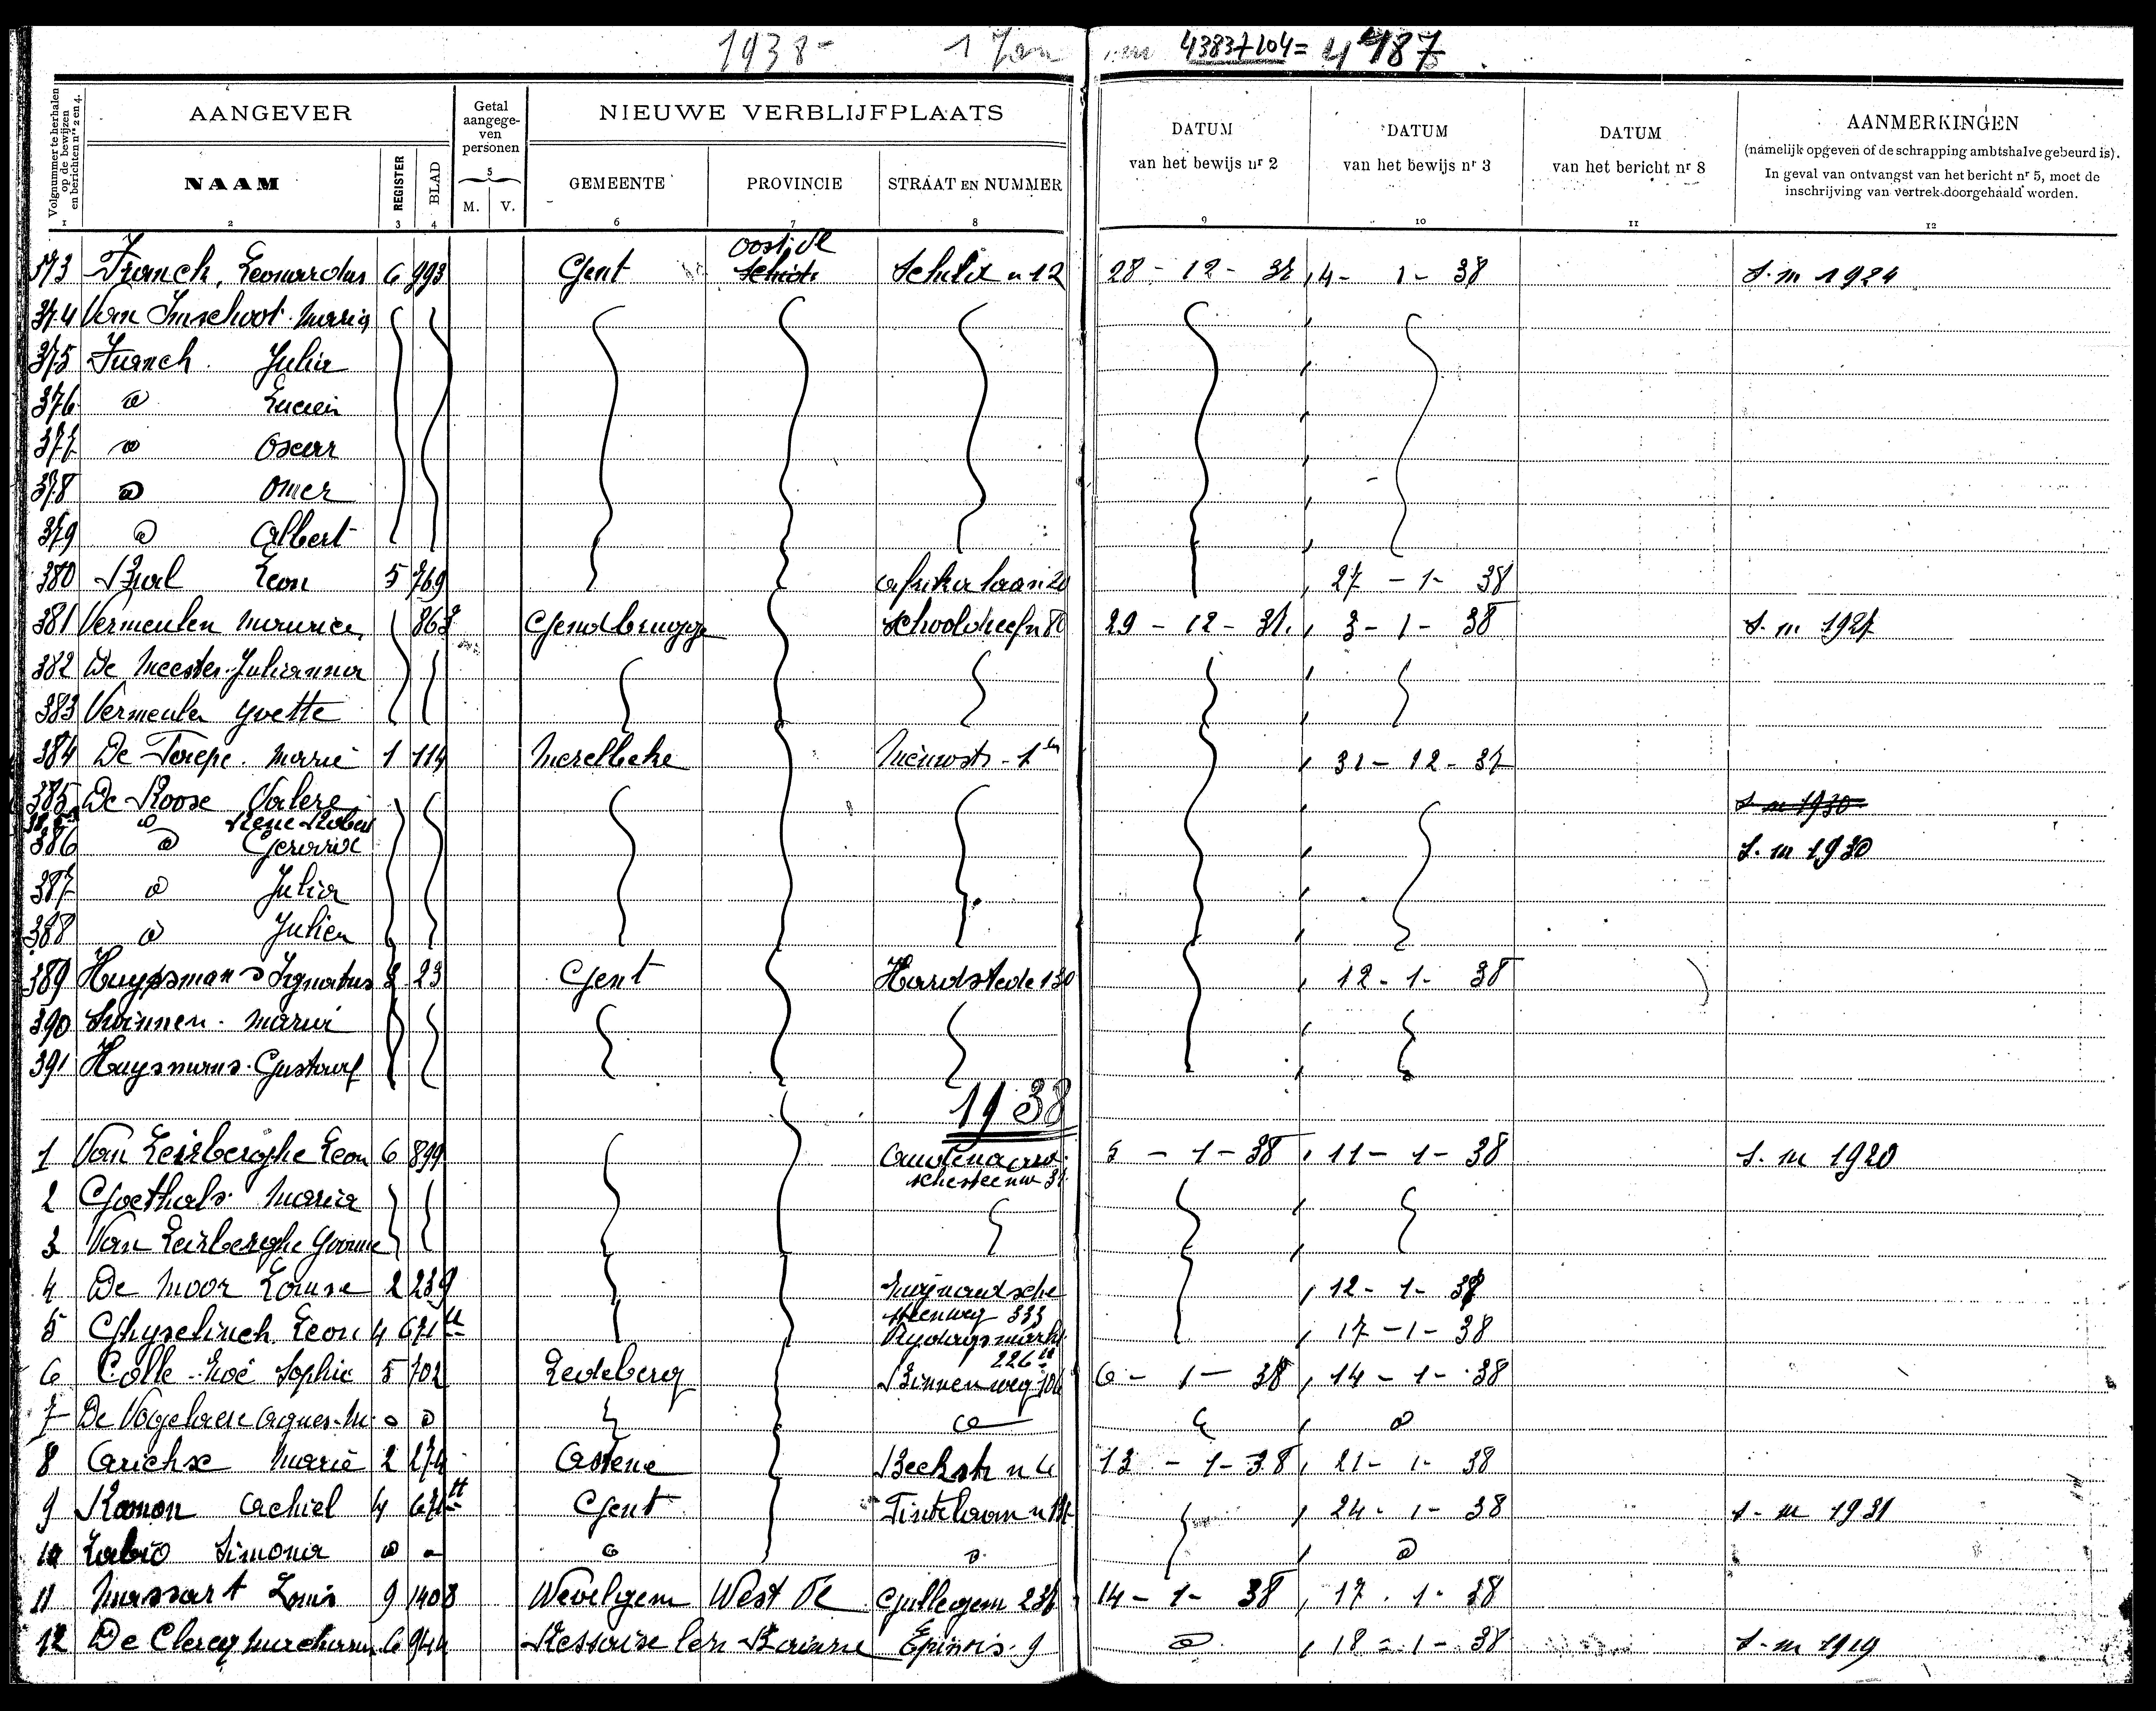 1938- 1 Jan 4383+104= 4487
Volgnummer te herhalen op de bewijzen en berichten nrs 2 en 4.
AANGEVER
Getal aangege- ven personen
NIEUWE VERBLIJFPLAATS
DATUM van het bewijs nr 2
DATUM van het bewijs nr 3
DATUM van het bericht nr 8
AANMERKINGEN
(namelijk opgeven of de schrapping ambtshalve gebeurd is).
In geval van ontvangst van het bericht nr 5, moet de
inschrijving van vertrek doorgehaald worden.
NAAM REGISTER BLAD 5 M. V. GEMEENTE PROVINCIE STRAAT EN NUMMER
1 2 3 4 6 7 8 9 10 11 12
373 Franck, Leonardus 6 993 Gent Oost Vl Schulit n 12 28 - 12 - 37 4 - 1 - 38 S. m 1924
374 Van Imschoot Maria
375 Franck Julia
376 @ Lucien
377 @ Oscar
378 @ Omer
379 @ Albert
380 Bral Leon 5 769 Afrika laan 20 27 - 1 - 38
381 Vermeulen Maurice 863 Gendbrugge Schooldreef n 80 29 - 12 - 37 3 - 1 - 38 S. m 1927
382 De Meester Julianna
383 Vermeulen Yvette
384 De Taepe Marie 1 114 Merelbeke Nieuwstr - 1 31 - 12 - 37
385 De Roose Valere S. m 1930
@ Rene Robert
386 @ Gerarix S. m 1930
387 @ Julia
388 @ Julien
389 Huysmans Ignatus 3 23 Gent Hardstede 130 12 - 1 - 38
390 Swinnen Maria
391 Huysmans Gustaaf
1938
1 Van Leirberghe Leon 6 899 5 - 1 - 38 11 - 1 - 38 S. m 1920
2 Goethals Maria
3 Van Leirberghe Yvonne
4 De Moor Louise 2 239 steenweg 333 12 - 1 - 38
5 Ghyselinck Leon 4 671 Vrydagsmarkt 17 - 1 - 38
6 Colle Zoé Sophie 5 702 Ledeberg Binnenweg 6 - 1 - 38 14 - 1 - 38
7 De Vogelaere Agnes M. @ @ @ @
8 Arickx Marie 2 274 Astene Beekstr n 4 13 - 1 - 38 21 - 1 - 38
9 Ramon Achiel 4 671 Gent 24 - 1 - 38 S. m 1931
10 Labio Simona @ @ @
11 Massart Louis 9 1408 Wevelgem West Vl Gullegem 236 14 - 1 - 38 17 - 1 - 38
12 De Clercq 6 944 Epinois 9 @ 18 - 1 - 38 S. m 1919